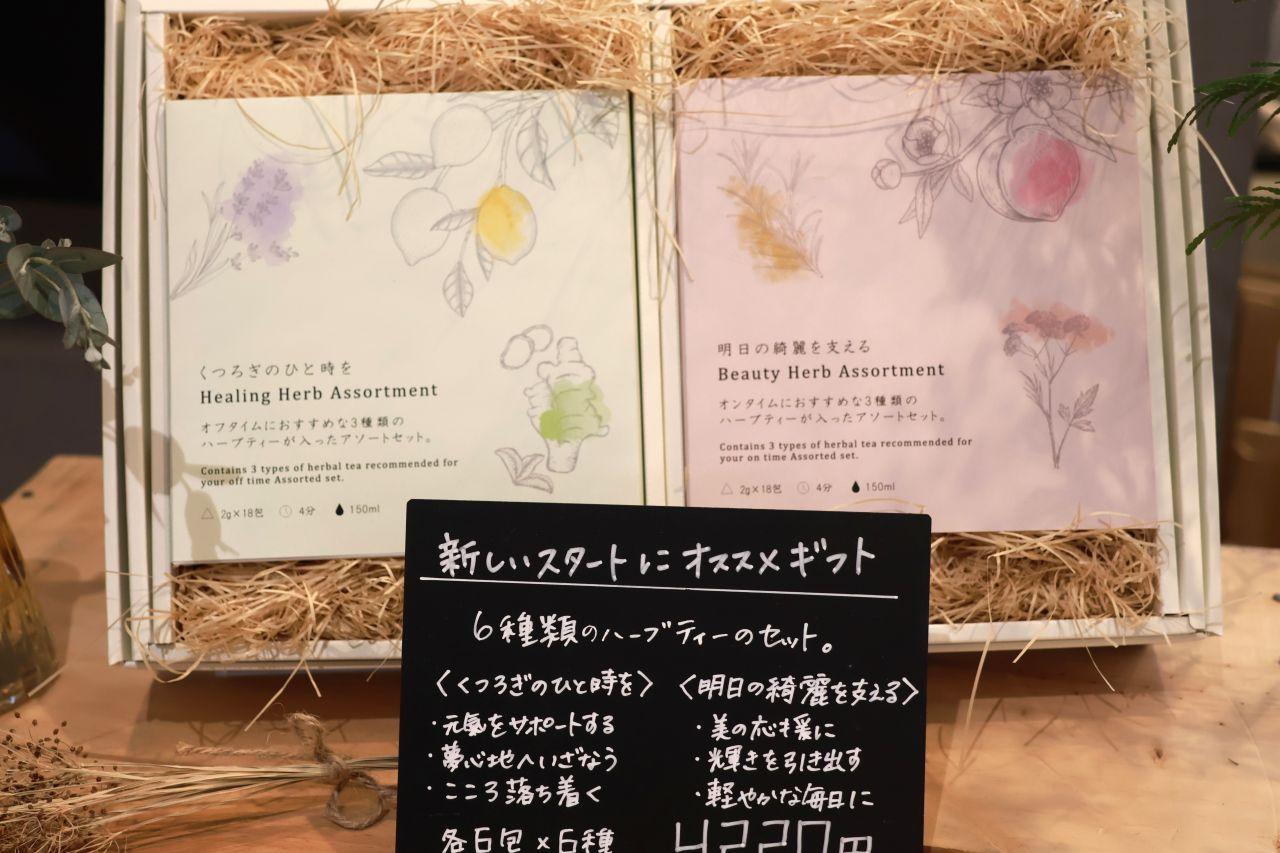 くつろぎのひと時を
Healing Herb Assortment
オフタイムにおすすめな3種類の
ハーブティーが入ったアソートセット。
Contains 3 types of herbal tea recommended for
your off time Assorted set.
2g×18包 4分 150ml
明日の綺麗を支える
Beauty Herb Assortment
オンタイムにおすすめな3種類の
ハーブティーが入ったアソートセット。
Contains 3 types of herbal tea recommended for
your on time Assorted set.
2g×18包 4分 150ml
新しいスタートにオススメギフト
6種類のハーブティーのセット。
〈くつろぎのひと時を〉
・元気をサポートする
・夢心地へいざなう
・こころ落ち着く
各6包×6種
〈明日の綺麗を支える〉
・美の応援に
・輝きを引き出す
・軽やかな毎日に
4220円